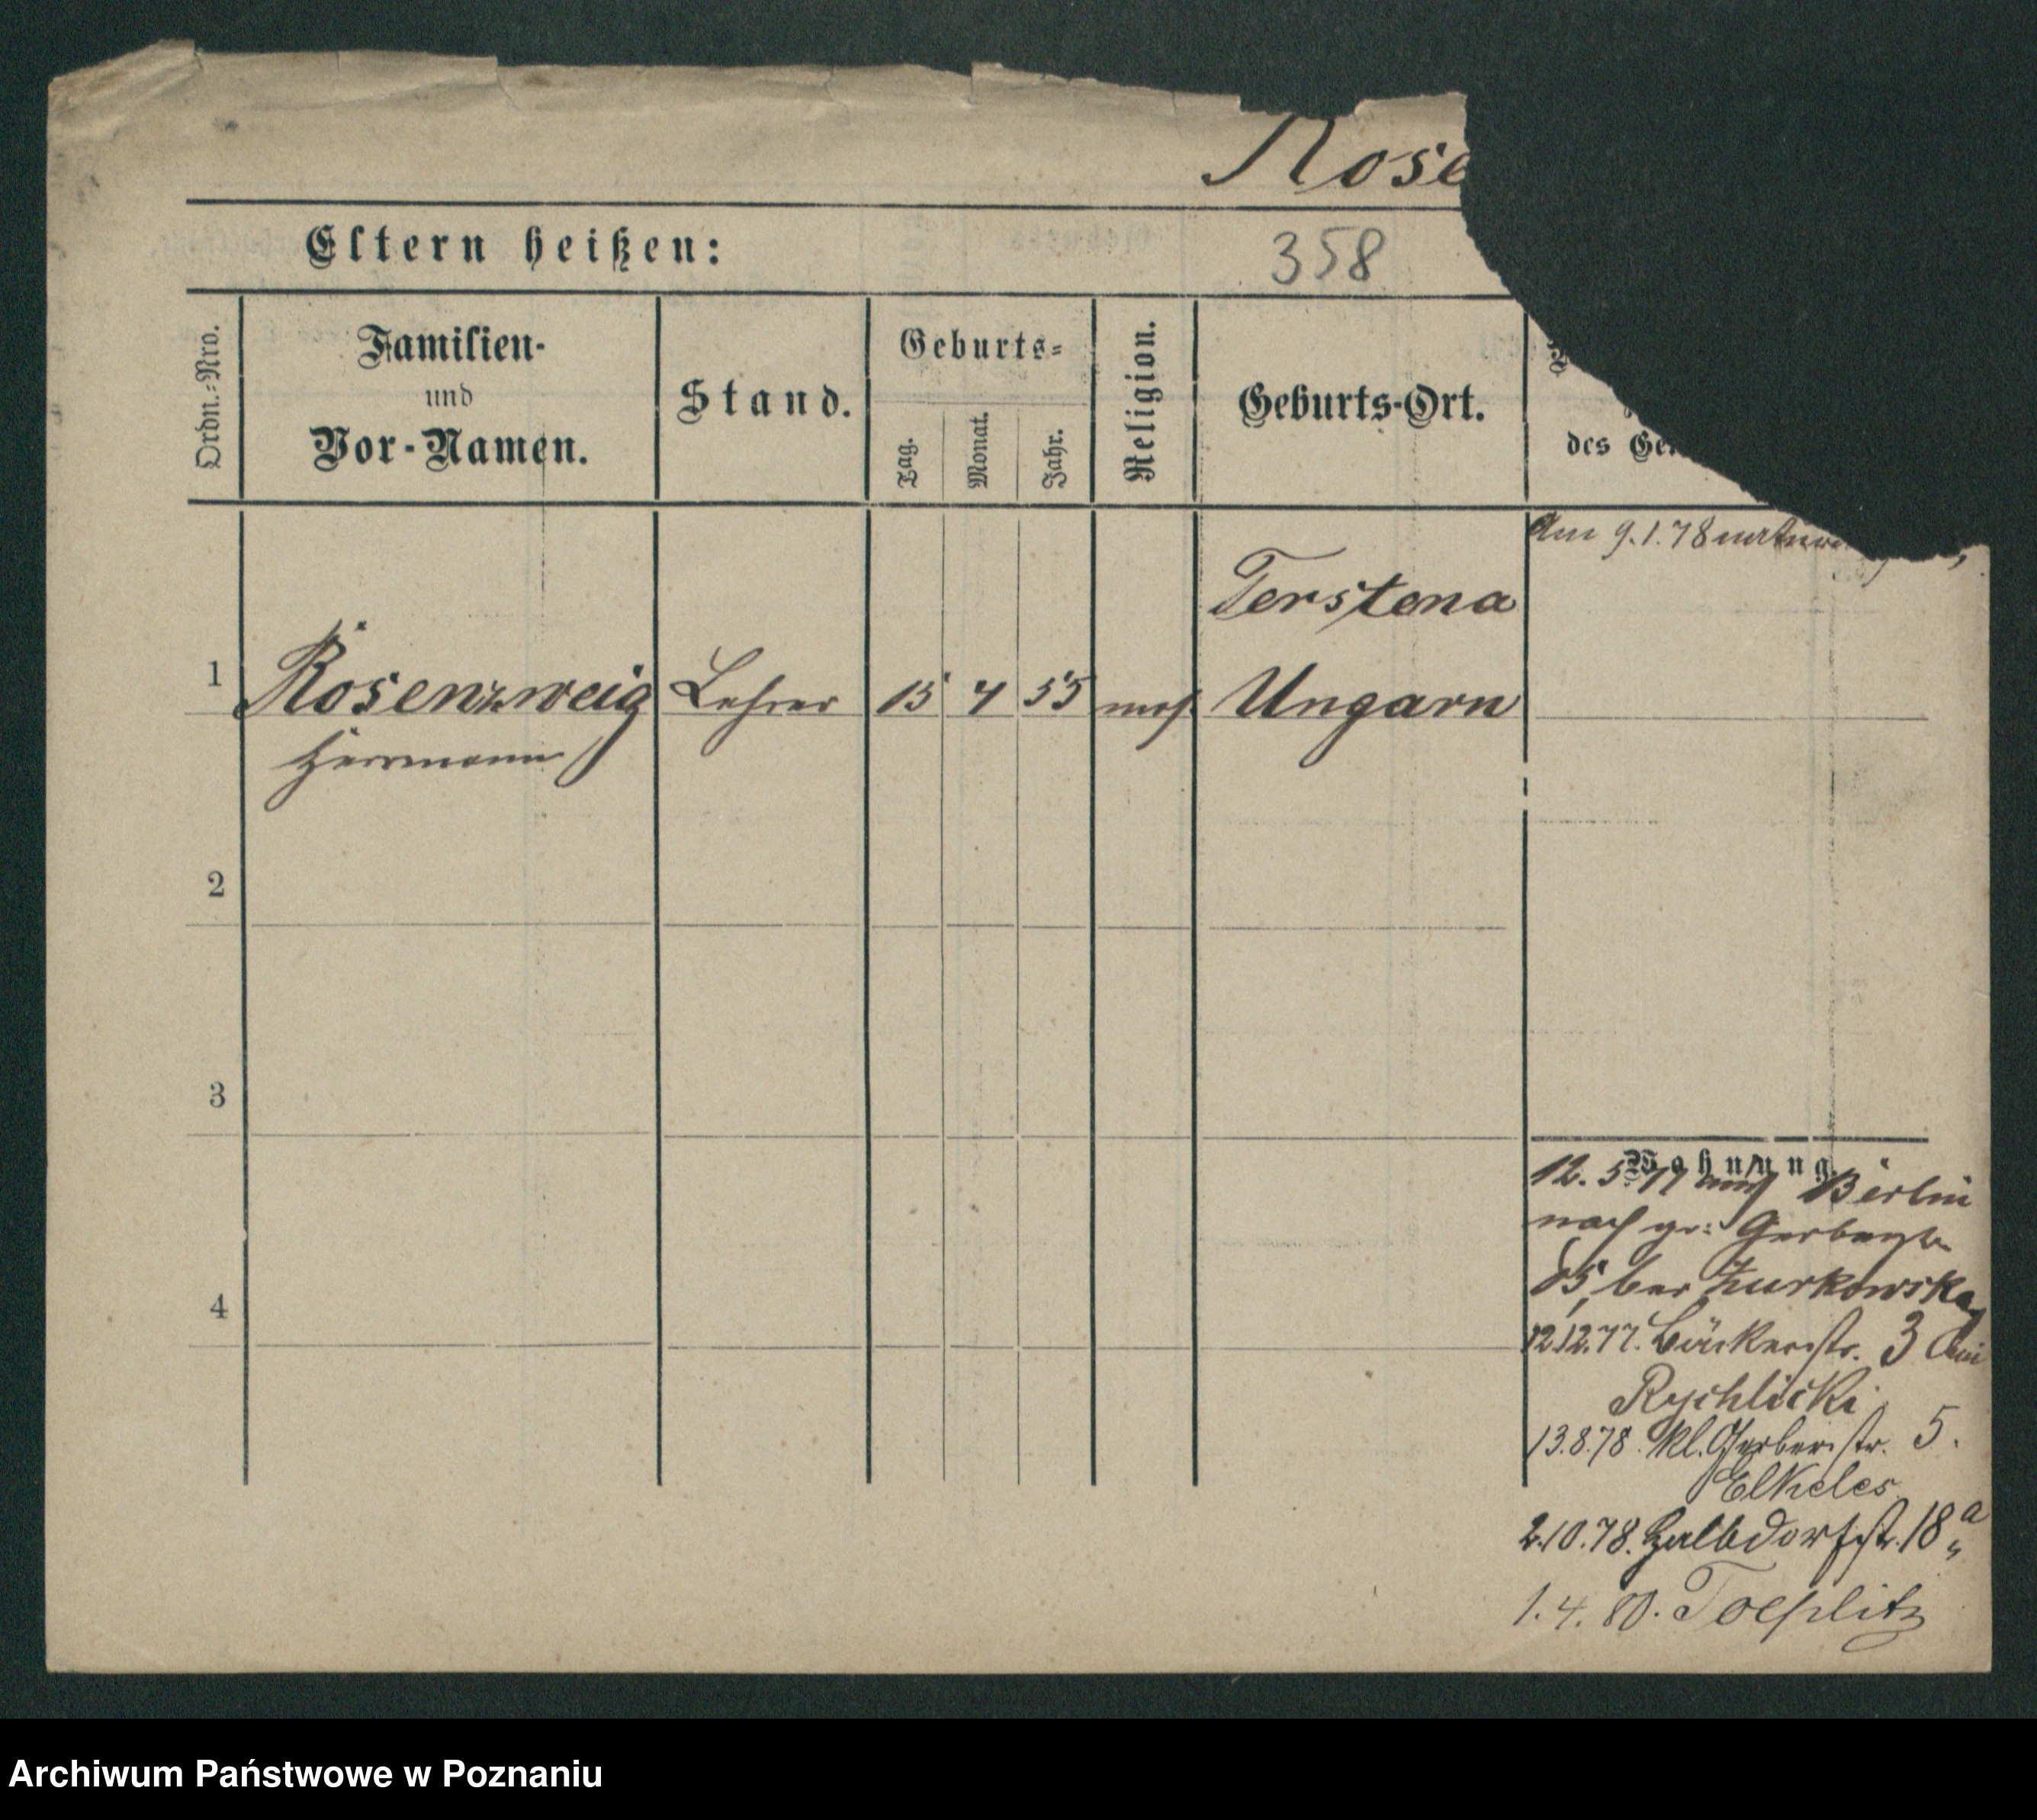 Rose
Eltern heißen:
358
Ordn.=Nro.
Familien-
und
Vor-Namen.
Stand.
Geburts=
Tag.
Monat.
Jahr.
Religion.
Geburts-Ort.
des Ge
Am 9.1.78
Terstena
1 Rosenzweig Lehrer 15 4 55 mos. Ungarn
Herrmann
2
3
4
Wohnung
12. 5 77 aus Berlin
nach gr: Gerberstr
15, bei Zurkowska
12.12.77. Bäckerstr. 3 bei
Rychlicki
13.8.78. Kl. Gerberstr. 5.
Elkeles
2.10.78. Halbdorfstr. 18 a
1.4.80. Toeplitz
Archiwum Państwowe w Poznaniu